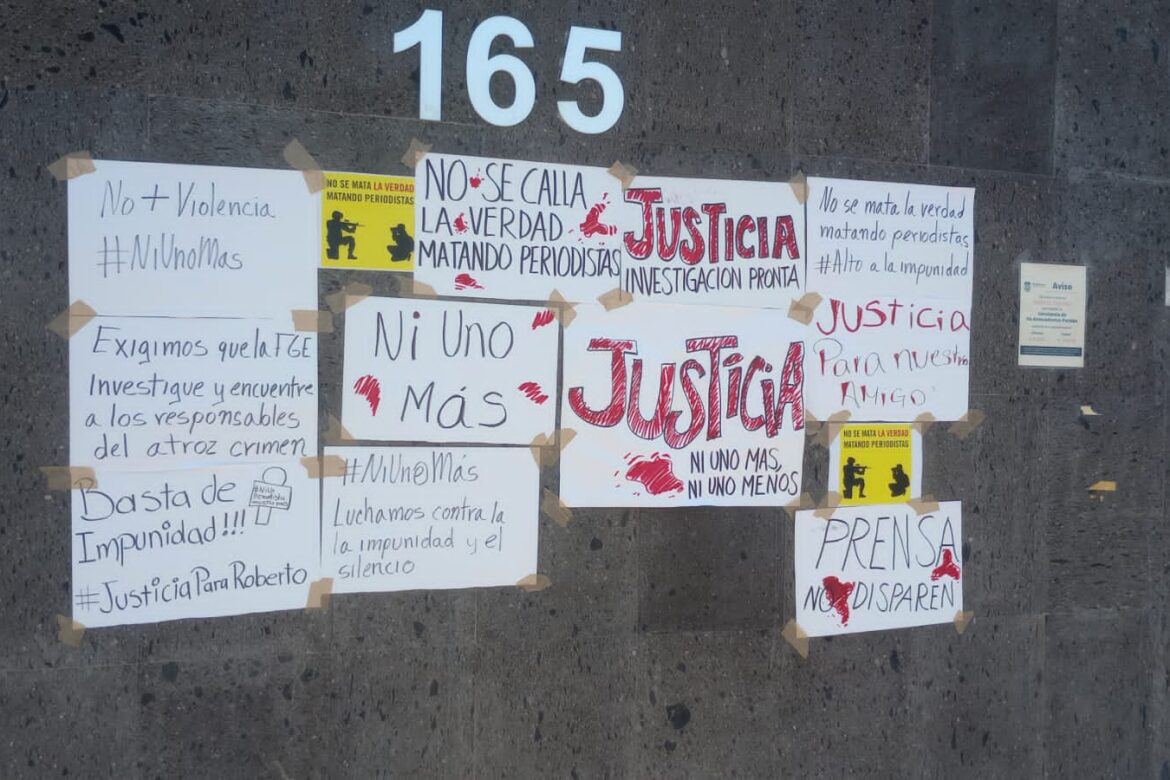 165
No + Violencia
#NiUnoMas
NO SE MATA LA VERDAD
MATANDO PERIODISTAS
NO SE CALLA
LA VERDAD
MATANDO PERIODISTAS
JUSTICIA
INVESTIGACION PRONTA
No se mata la verdad
matando periodistas
#Alto a la impunidad
Exigimos que la FGE
Investigue y encuentre
a los responsables
del atroz crimen
Ni Uno
Más
JUSTICIA
NI UNO MAS,
NI UNO MENOS
JUSTICIA
Para nuestro
AMIGO
Aviso
Basta de
Impunidad!!!
#JusticiaParaRoberto
#NiUn@Más
Luchamos contra la
la impunidad y el
silencio
NO SE MATA LA VERDAD
MATANDO PERIODISTAS
PRENSA
NO DISPAREN